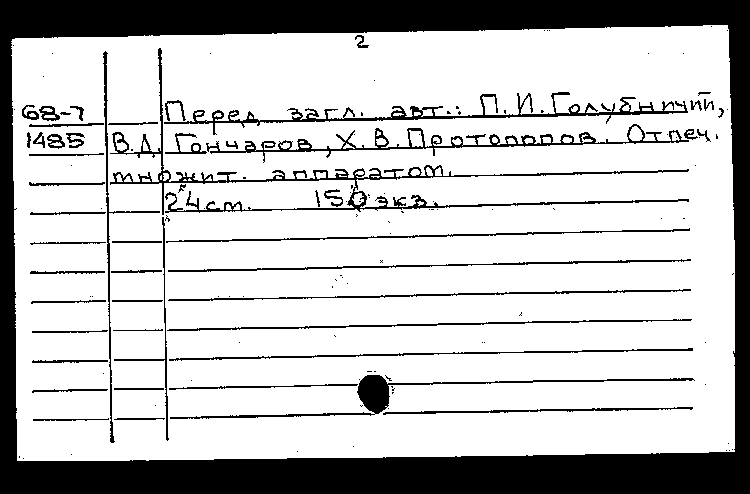 2
68-7 Перед загл. авт.: П.И.Голубничий,
1485 В.Д. Гончаров, Х.В.Протопопов. Отпеч.
множит. аппаратом.
24см. 150 экз.